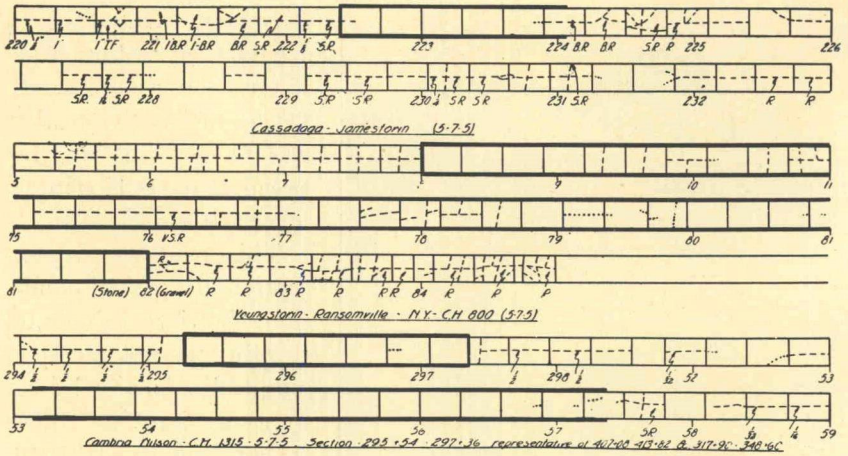 220 ⅛ 1 1 T.F 221 1 B.R 1-B.R B.R S.R 222 ⅛ S.R 223 224 B.R B.R S.R R 225 226
S.R. ¼ S.R 228 229 S.R S.R 230 S.R S.R 231 S.R. 232 R R
Cassadaga - Jamestown (5-7-5)
5 6 7 9 10 11
75 76 V.S.R 77 78 79 80 81
81 (Stone) 82 (Gravel) R R R 83 R R R R 84 R P P
Youngstown - Ransomville - N.Y - C.H 800 (5-7-5)
294 295 296 297 298 52 53
53 54 55 56 57 S.R 58 59
Cambria Wilson - C.H. 1315 - 5-7-5 Section 295+54 - 297+36 representative of